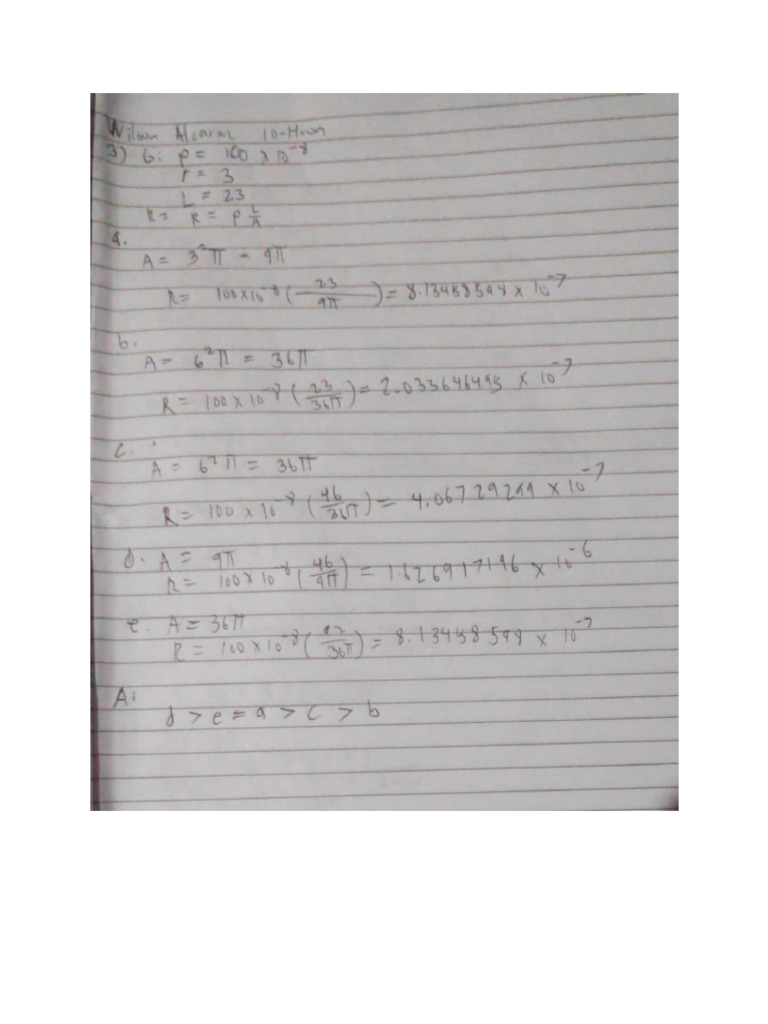 Wilson Alcaraz 10-Hoon
3) G: p = 100 x 10^-8
r = 3
L = 23
R = R = p L/A
a.
A = 3²π = 9π
R = 100x10^-8 (23/9π) = 8.13458598 x 10^-7
b.
A = 6²π = 36π
R = 100 x 10^-8 (23/36π) = 2.033646495 x 10^-7
c.
A = 6²π = 36π
R = 100 x 10^-8 (46/36π) = 4.06729299 x 10^-7
d. A = 9π
R = 100x10^-8 (46/9π) = 1.626917196 x 10^-6
e. A = 36π
R = 100x10^-8 (92/36π) = 8.13458598 x 10^-7
A:
d > e = a > c > b